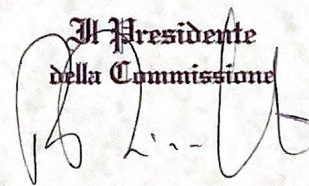 Il Presidente
della Commissione